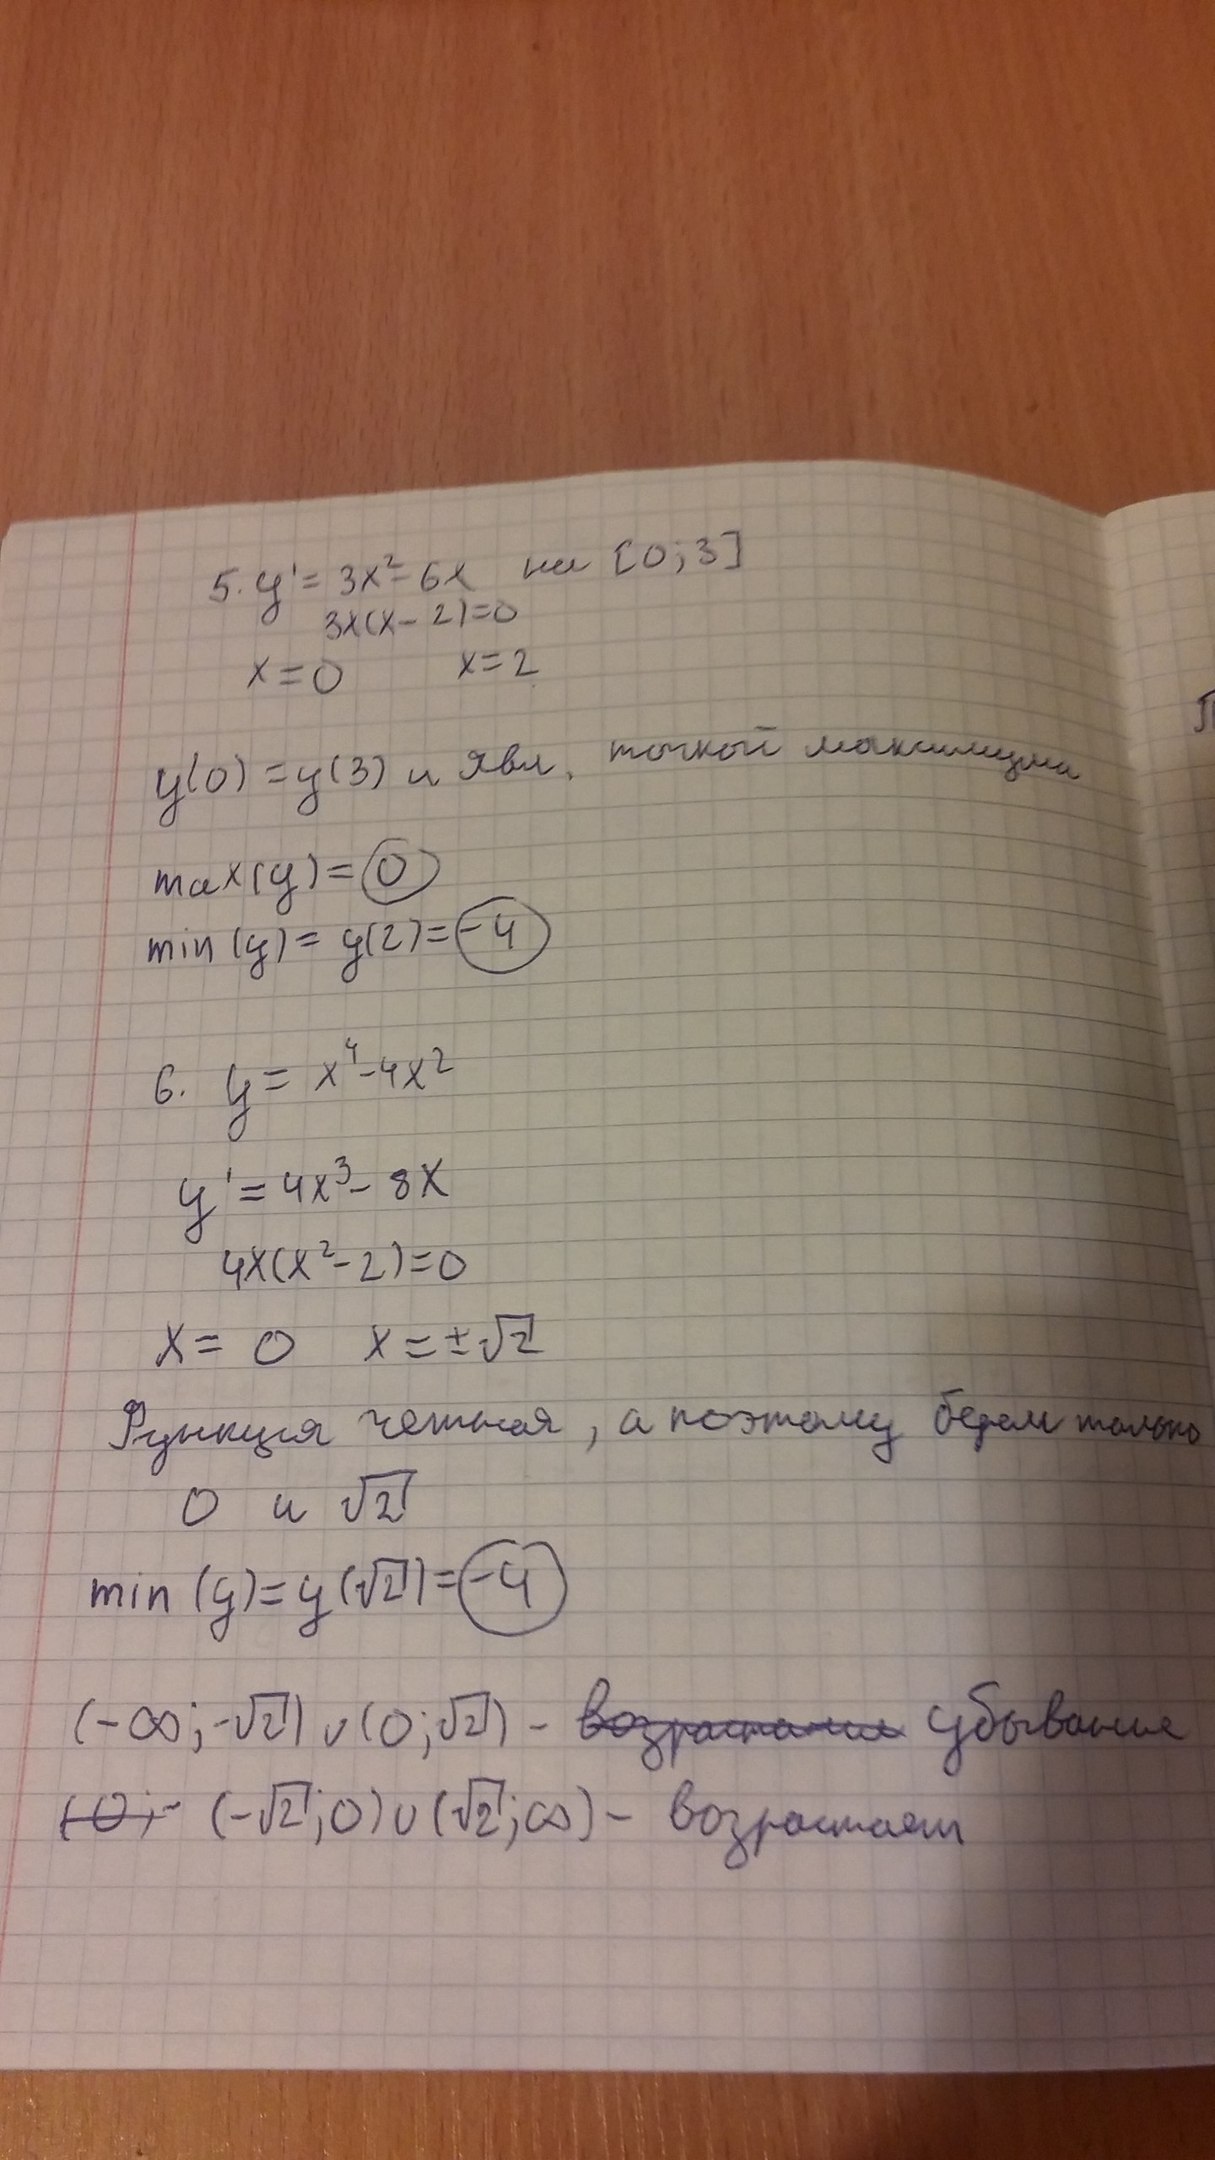 5. y' = 3x² - 6x на [0; 3]
3x(x - 2) = 0
x = 0 x = 2
y(0) = y(3) и явл. точкой максимума
max(y) = 0
min(y) = y(2) = -4
6. y = x⁴ - 4x²
y' = 4x³ - 8x
4x(x² - 2) = 0
x = 0 x = ±√2
Функция четная, а поэтому берем только
0 и √2
min(y) = y(√2) = -4
(-∞; -√2) ∪ (0; √2) - возрастание убывание
(0; - (-√2; 0) ∪ (√2; ∞) - возрастает
П